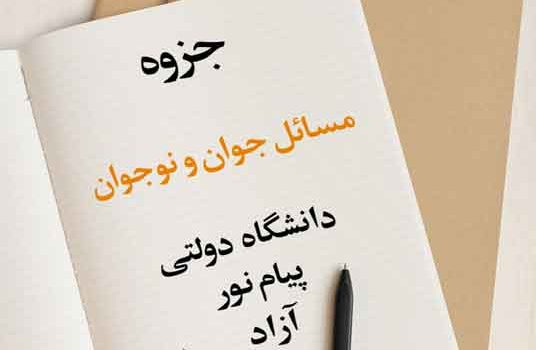 جزوه
مسائل جوان و نوجوان
دانشگاه دولتی
پیام نور
آزاد